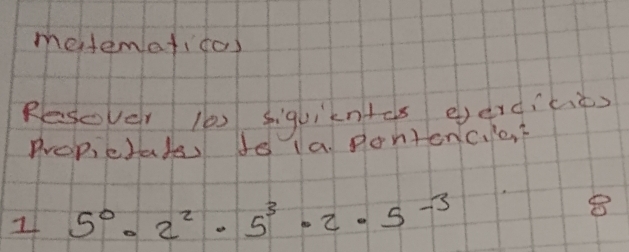 matematicas
Resover los siguientes ejercicios
propiedades de la pontencia:
1 5⁰ · 2² · 5³ · 2 · 5⁻³ 8